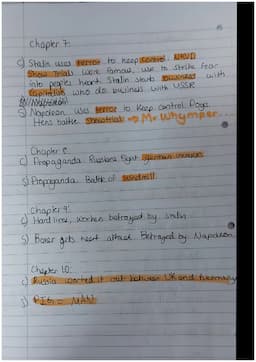 Chapter 7:
C) Stalin uses terror to keep control. NKVD
Show Trials were famous, use to strike fear
into peoples heart. Stalin starts business with
Capitalists who do business with USSR
S) Napoleon uses terror to keep control. Dogs.
Hens battle. Showtrials → Mr Whymper.
Chapter 8:
C) Propaganda. Russians fight German invasion
S) Propaganda. Battle of windmill.
Chapter 9:
C) Hard lives, workers betrayed by Stalin
S) Boxer gets heart attack. Betrayed by Napoleon.
Chapter 10:
C) Russia worked it out between UK and Germany
S) PIG = MAN